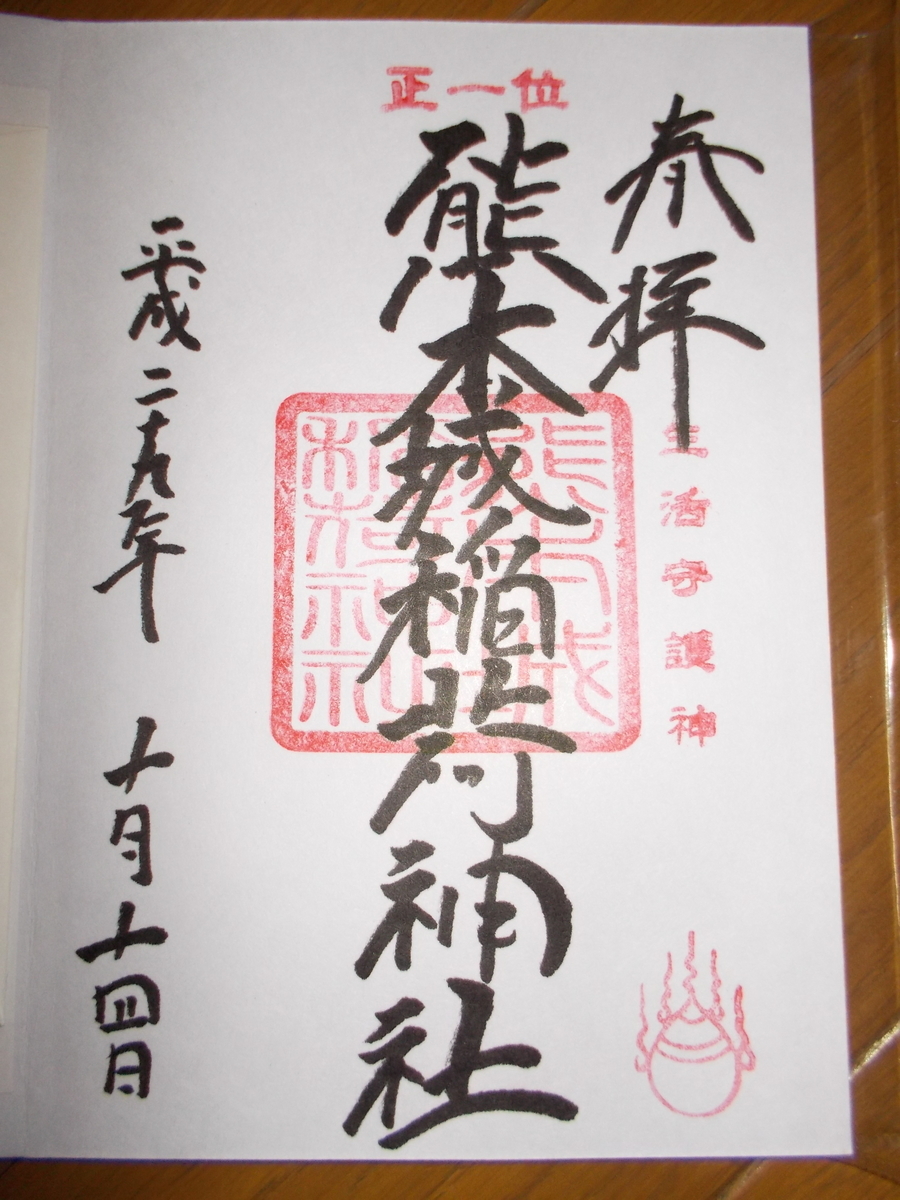 正一位
奉拝
生活守護神
熊本城稲荷神社
平成二十九年 十月十四日